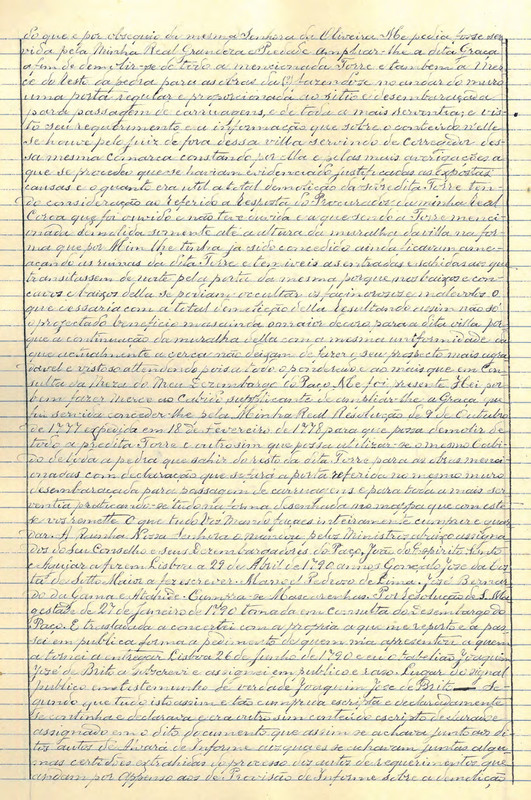 So que e por obsequio da mesma Senhora da Oliveira Me pedia fosse ser-
vida pela Minha Real Grandeza e Piedade ampliar-lhe a dita Graça
a fim de demolir-se de todo a mencionada Torre e tambem a Mer-
cê do resto da pedra para as obras da (?) fazendo-se no andar do muro
uma porta regular e proporcionada ao sitio e desembaraçada
para passagem de carruagens, e de toda a mais serventia; e vis-
to seu requerimento e a informação que sobre o conteúdo nelle
se houve pelo juiz de fora dessa villa servindo de Corregedor des-
sa mesma comarca constando por ella e pelas mais averigações a
que se procedeo que se haviam evidenciado justificadas as expostas
causas e o quanto era util a total demolição da sobredita Torre ten-
do consideração ao referido a Resposta do Procurador da minha Real
Coroa que foi ouvido e não teve duvida e a que sendo a Torre menci-
onada demolida somente até a altura da muralha da villa na for-
ma que por Mim lhe tinha já sido concedido ainda ficavam ame-
açando as ruinas da dita Torre e temiveis as entradas e sahidas aos que
transitassem de noite pela porta da mesma porque nos baixos e con-
cavos e baixos della se podiam occultar os facinorosos e malevolos o
que cessaria com a total demolição della resultando assim não só
o projectado beneficio mas ainda o maior decoro para a dita villa por-
que a continuação da muralha della com a mesma uniformidade da
que actualmente a cerca não deixam de fazer o seu prospecto mais agra-
davel e vistoso attendendo pois a todo o ponderado e ao mais que em Con-
sulta da Meza do Meu Dezembargo do Paço, Me foi presente Hei por
bem fazer Merce ao Cabido supplicante de ampliar-lhe a Graça que
fui servida conceder-lhe pela Minha Real Resolução de 9 de Outubro
de 1777 expedida em 18 de Fevereiro de 1778 para que possa demolir de
todo a predita Torre e outrosim que possa utilizar-se o mesmo Cabi-
do de toda a pedra que sahir do resto da dita Torre para as obras menci-
onadas com declaração que se fará a porta referida no mesmo muro
desembaraçada para passagem de carruagens e para toda a mais ser-
ventia praticando-se tudo na forma desenhada no mappa que com este
se vos remette. O que tudo Vos Mando façaes inteiramente cumprir e guar-
dar. A Rainha Nossa Senhora o mandou pelos Ministros abaixo assigna-
dos do Seu Conselho e seus Dezembargadores do Paço, João do Espirito Santo
e Aguiar a fez em Lisboa a 29 de Abril de 1790 annos Gonçalo José da Cos-
ta de Sotto Maior a fez escrever. Manoel Pedrozo de Lima, José Bernar-
do da Gama e Ataide. Cumpra-se Mascarenhas. Por Resolução de S. Ma-
gestade de 27 de Janeiro de 1790 tomada em consulta do Dezembargo do
Paço. E trasladada a concertei com a propria a que me reporto e a pas-
sei em publica forma a pedimento de quem m'a apresentou a quem
a tornei a entregar Lisboa 26 de Junho de 1790 e eu o Tabelião Joaquim
José de Brito a subscrevi e assignei em publico e raso. Lugar do signal
publico em testemunho de verdade Joaquim José de Brito — Se-
gundo que tudo isto assim e tão cumprida escripta e declaradamente
se continha e declarava e era outro sim conteúdo escripto declarado e
assignado em o dito documento que assim se achava junto aos di-
tos autos de Vivará de Informe aos quaes se achavam juntas algu-
mas certidões extrahidas do processo dos autos de requerimentos que
andam por Appenso aos de Provisão de Informe sobre a demolição